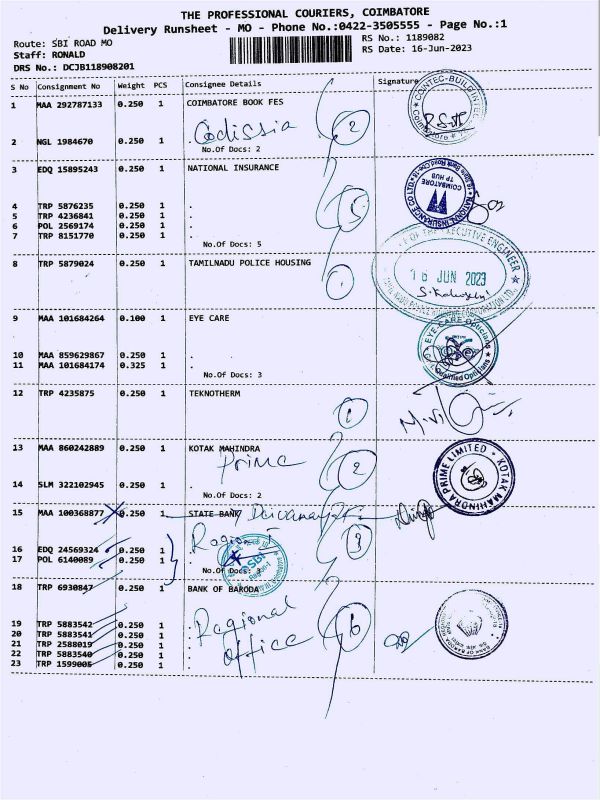 THE PROFESSIONAL COURIERS, COIMBATORE
Delivery Runsheet - MO - Phone No.:0422-3505555 - Page No.:1
Route: SBI ROAD MO
RS No.: 1189082
Staff: RONALD
RS Date: 16-Jun-2023
DRS No.: DCJB118908201
S No Consignment No Weight PCS Consignee Details Signature
1 MAA 292787133 0.250 1 COIMBATORE BOOK FES
Codissia 2
2 NGL 1984670 0.250 1 .
No.Of Docs: 2
3 EDQ 15895243 0.250 1 NATIONAL INSURANCE
4 TRP 5876235 0.250 1 .
5 TRP 4236841 0.250 1 . 5
6 POL 2569174 0.250 1 .
7 TRP 8151770 0.250 1 .
No.Of Docs: 5
COIMBATORE
TP HUB
NATIONAL INSURANCE CO LTD
8 TRP 5879024 0.250 1 TAMILNADU POLICE HOUSING
OF THE EXECUTIVE ENGINEER
16 JUN 2023
9 MAA 101684264 0.100 1 EYE CARE
10 MAA 859629867 0.250 1 .
11 MAA 101684174 0.325 1 .
No.Of Docs: 3
EYE CARE Opticians
Qualified Opticians
12 TRP 4235875 0.250 1 TEKNOTHERM
1
13 MAA 860242889 0.250 1 KOTAK MAHINDRA
Prime 2
14 SLM 322102945 0.250 1 .
No.Of Docs: 2
KOTAK MAHINDRA PRIME LIMITED
15 MAA 100368877 0.250 1 STATE BANK
Region 1 3
16 EDQ 24569324 0.250 1 .
17 POL 6140089 0.250 1 .
No.Of Docs: 3
SBI
Region-1
18 TRP 6930847 0.250 1 BANK OF BARODA
Regional
Office 6
19 TRP 5883542 0.250 1 .
20 TRP 5883541 0.250 1 .
21 TRP 2588019 0.250 1 .
22 TRP 5883540 0.250 1 .
23 TRP 1599005 0.250 1 .